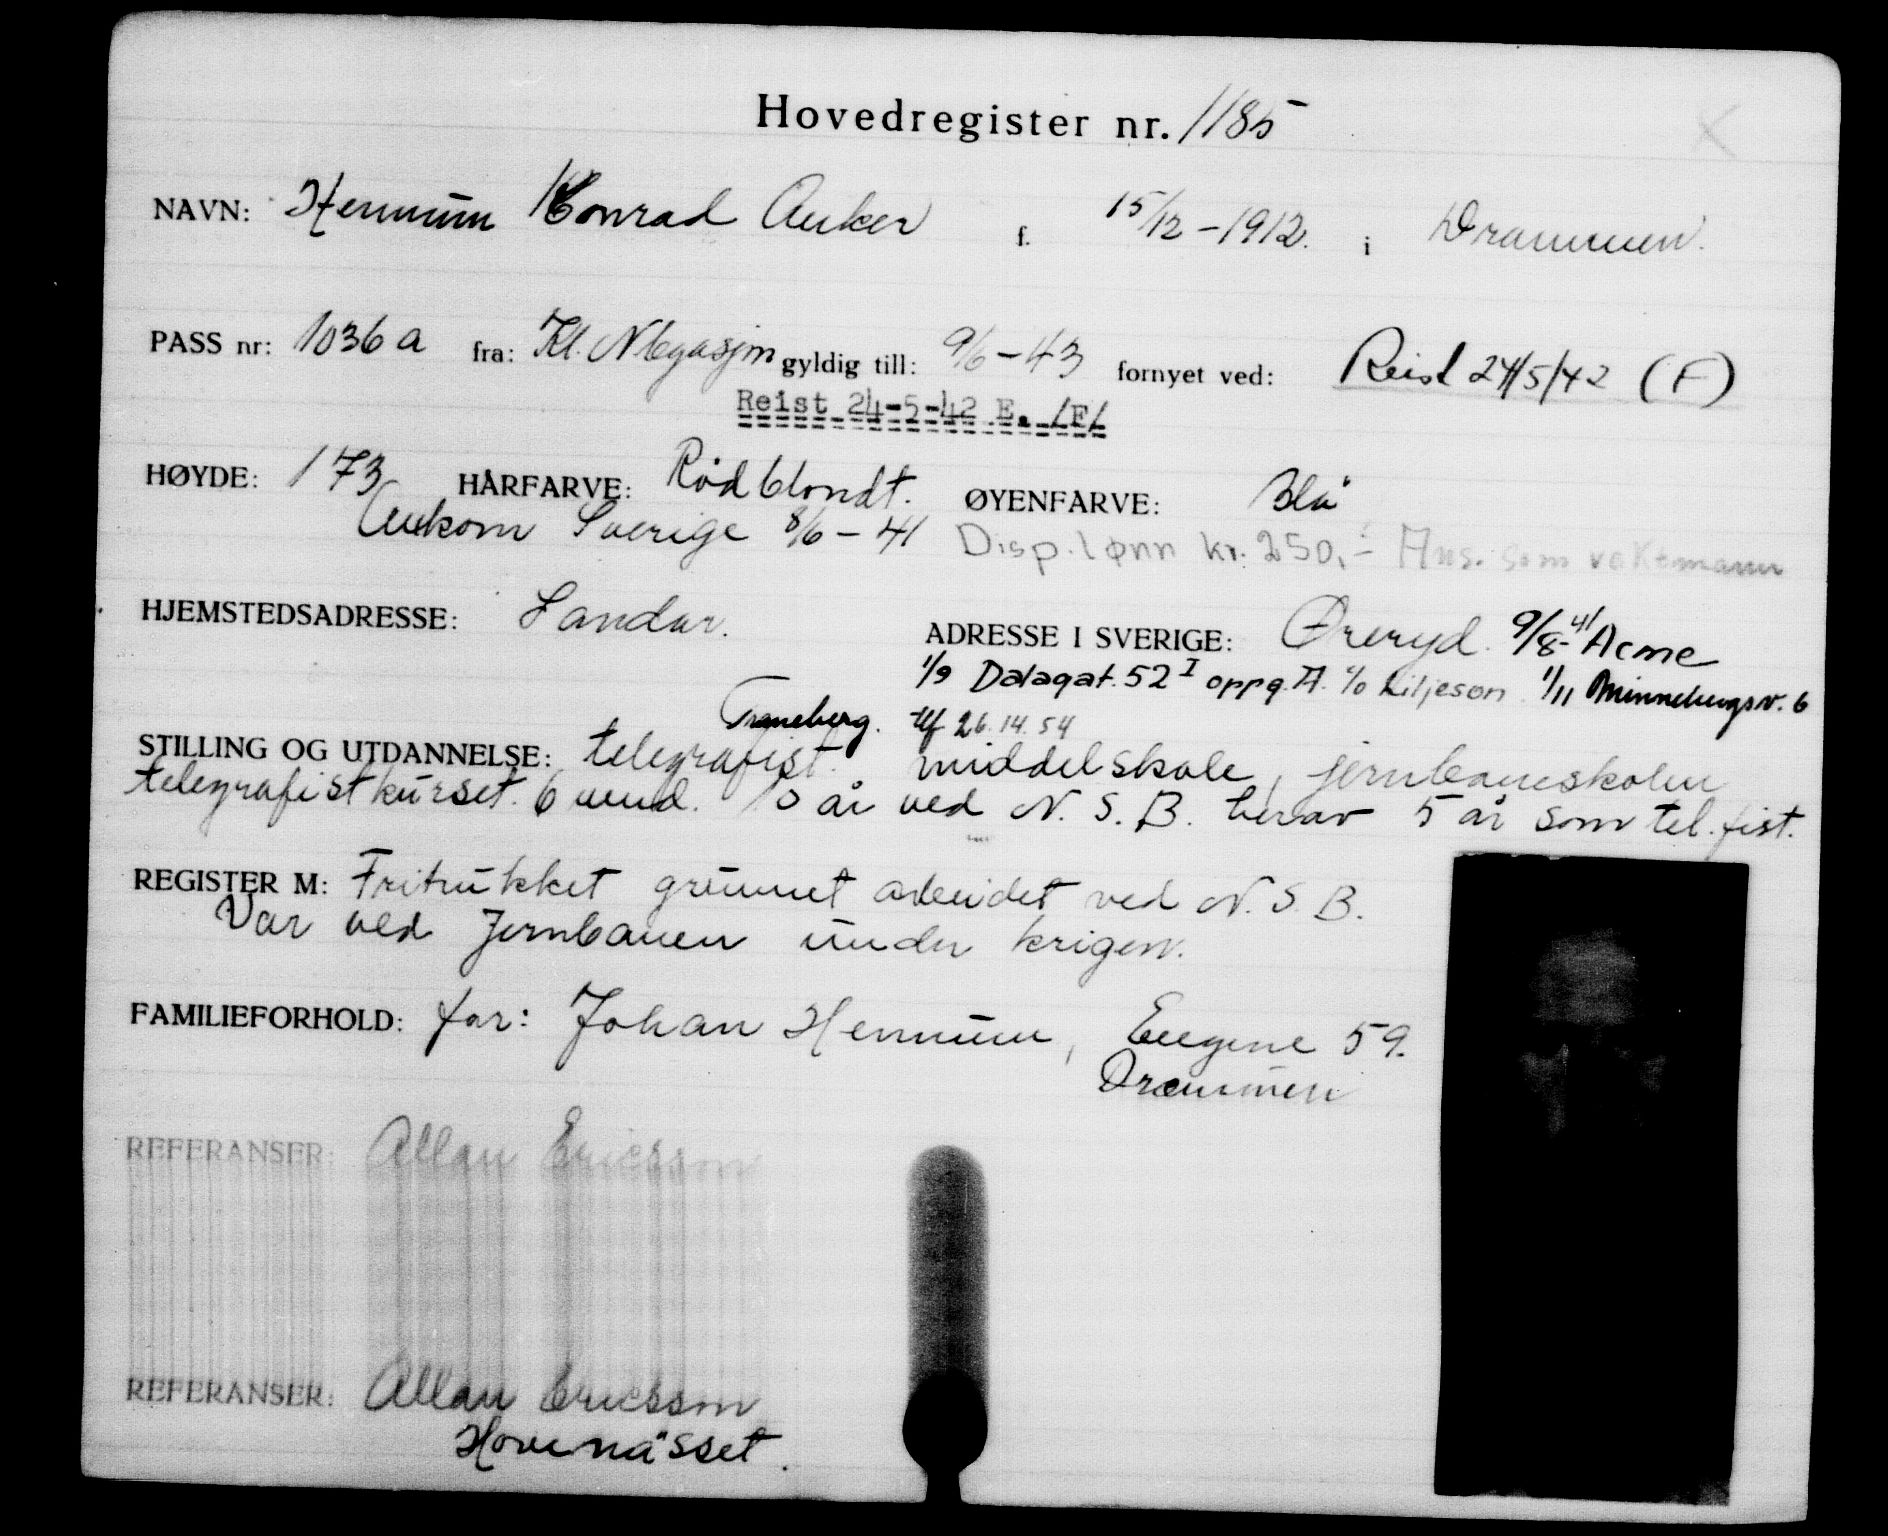 Hovedregister nr. 1185
NAVN: Hennum Konrad Anker f. 15/12-1912. i Drammen.
PASS nr: 1036 a fra: Kl. N legasjon gyldig till: 9/6-43 fornyet ved: Reist 24/5/42 (F)
Reist 24-5-42 E. /F/
HØYDE: 173 HÅRFARVE: Rødblondt. ØYENFARVE: Blå
Ankom Sverige 8/6-41 Disp. lønn kr. 250,- Ans. som vaktmann
HJEMSTEDSADRESSE: Sandar.
ADRESSE I SVERIGE: Øreryd. 9/8-41 Acme
1/9 Dalagat. 52 I oppg. A. c/o Liljeson 1/11 Minnebergsv. 6
Traneberg. tlf 26.14.54
STILLING OG UTDANNELSE: telegrafist. middelskole, jernbaneskolen
telegrafistkurset. 6 mnd. 10 år ved N.S.B. herav 5 år som tel.fist.
REGISTER M: Fritrukket grunnet arbeidet ved N.S.B.
Var ved Jernbanen under krigen.
FAMILIEFORHOLD: far: Johan Hennum, Eugene 59.
Drammen
REFERANSER: Allan Ericsson
REFERANSER: Allan Ericsson
Hovenässet.